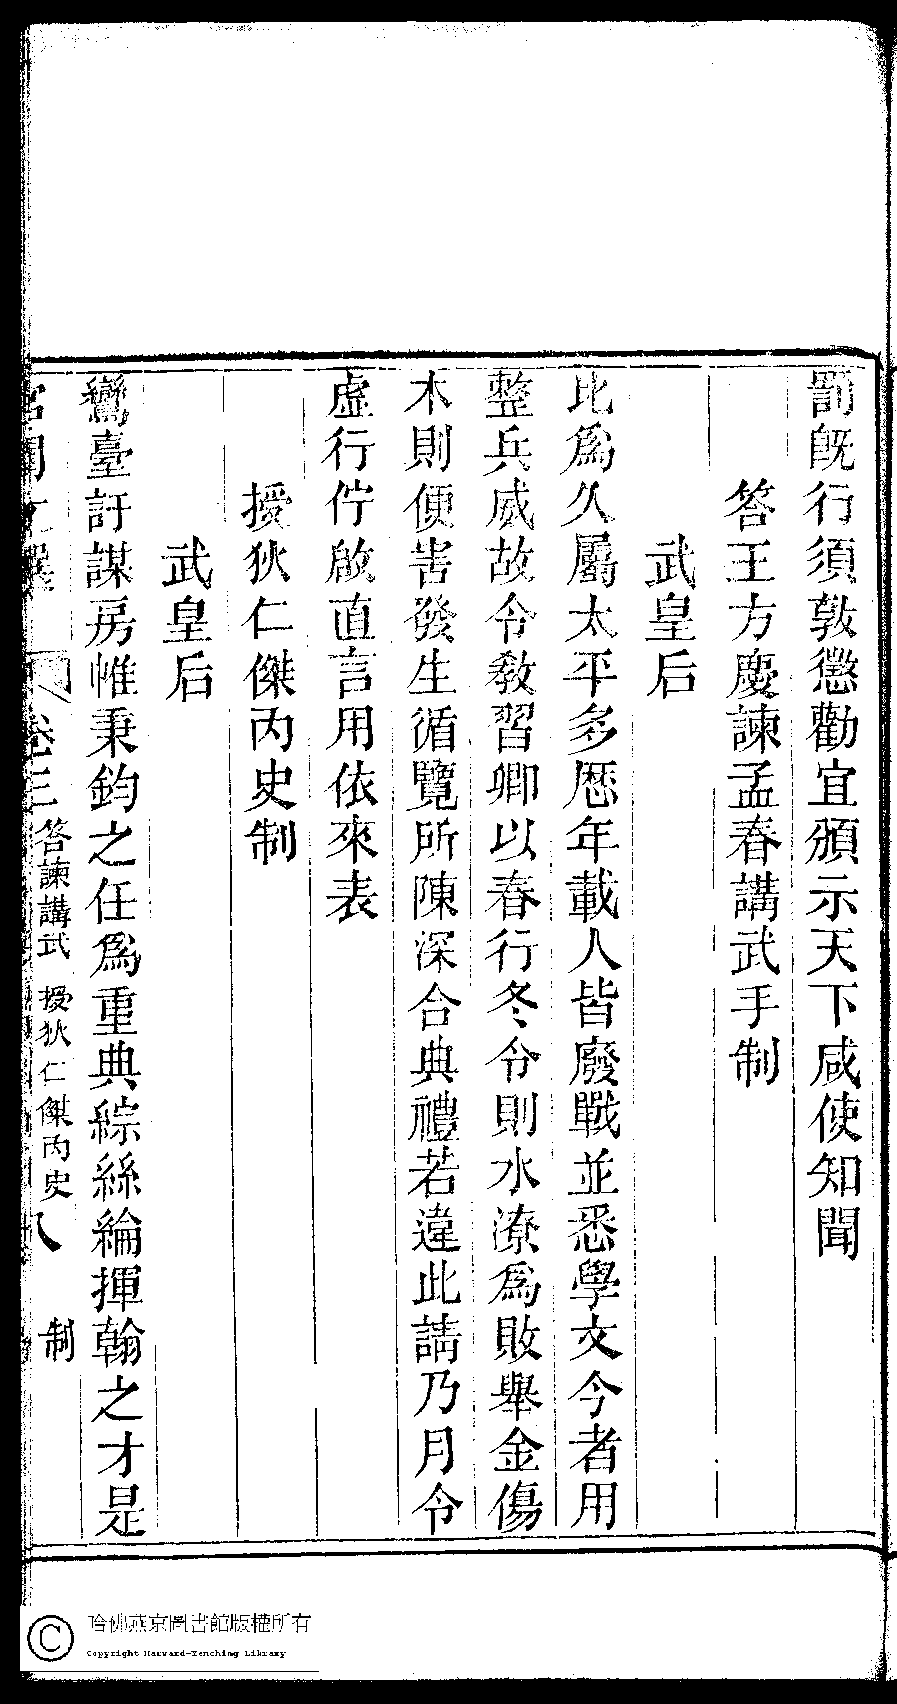 罰旣行須敦懲勸宜頒示天下咸使知聞
答王方慶諫孟春講武手制
武皇后
比爲久屬太平多歷年載人皆廢戰並悉學文今者用
整兵威故令教習卿以春行冬令則水潦爲敗舉金傷
木則便害發生循覽所陳深合典禮若違此請乃月令
虛行佇啟直言用依來表
授狄仁傑內史制
武皇后
鸞臺訏謀房帷秉鈞之任爲重典綜絲綸揮翰之才是
宮閨文選 卷三 答諫講武 授狄仁傑內史制 八
哈佛燕京圖書館版權所有
Copyright Harvard-Yenching Library